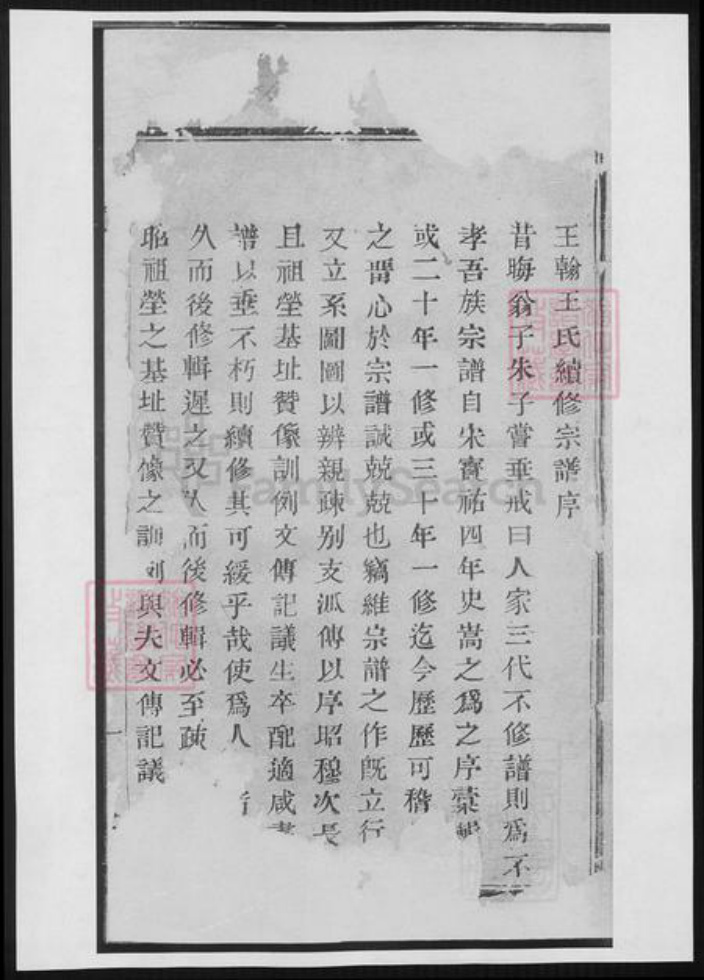 王翰王氏續修宗譜序
昔晦翁子朱子嘗垂戒曰人家三代不修譜則爲不
孝吾族宗譜自宋寳祐四年史嵩之爲之序藁
或二十年一修或三十年一修迄今歷歷可稽
之畱心於宗譜誠兢兢也竊維宗譜之作旣立行
又立系圖圖以辨親疎别支派傳以序昭穆次長
且祖塋基址贊像訓例文傳記議生卒配適咸
譜以垂不朽則續修其可緩乎哉使爲人
久而後修輯遲之又久而後修輯必至
祖塋之基址贊像之訓例與夫文傳記議
FamilySearch